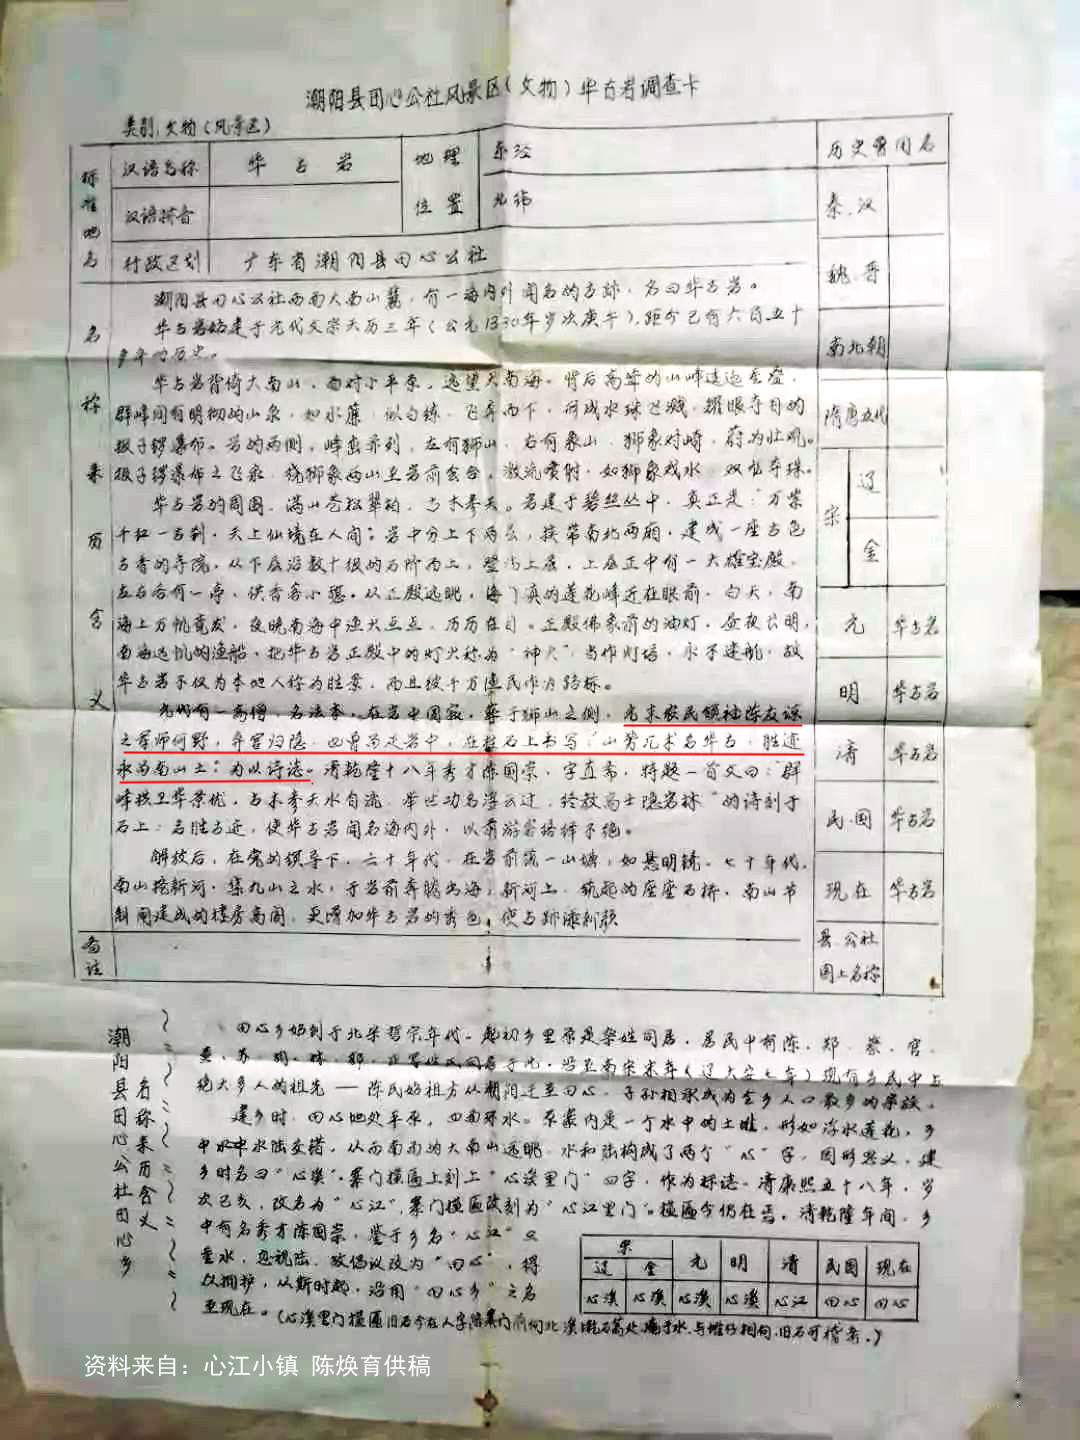 潮阳县田心公社风景区(文物)华古岩调查卡
类别:文物(风景区)
标准地名
汉语名称 华古岩 地理位置 东经 历史曾用名
汉语拼音 北纬 秦、汉
行政区划 广东省潮阳县田心公社 魏、晋
名称来历含义
潮阳县田心公社西南大南山麓,有一海内外闻名的古跡,名曰华古岩。
华古岩始建于元代文宗天历三年(公元1330年岁次庚午),距今已有六百五十
多年的历史。
南北朝
华古岩背倚大南山,面对小平原,远望大南海。背后高耸的山峰连迤重叠,
群峰间有明彻的山泉,如水簾,似白练,飞奔而下,何成水珠飞溅,耀眼夺目的
隋唐五代
掇子锣瀑布。岩的两侧,峰峦并列,左有狮山,右有象山,狮象对峙,蔚为壮观。
掇子锣瀑布之飞泉,绕狮象两山至岩前会合,激流喷射,如狮象戏水,双龙夺珠。
华古岩的周围,满山苍松翠柏,古木参天。岩建于碧丝丛中,真正是:"万紫
千红一古刹,天上仙境在人间";岩中分上下两层,挟带南北两厢,建成一座古色
古香的寺院,从下层沿数十级的石阶而上,登上层,上层正中有一大雄宝殿,
宋 辽 金
左右各有一亭,供香客小憩。从正殿远眺,海门真的莲花峰近在眼前,白天,南
海上万帆竟发,夜晚南海中渔火点点,历历在目。正殿佛象前的油灯,昼夜长明,
南海远帆的渔船,把华古岩正殿中的灯火称为"神火",当作灯塔,永不迷航,故
华古岩不仅为本地人称为胜景,而且被千万渔民作为路标。
元 华古岩
明 华古岩
元代有一高僧,名法李,在岩中圆寂,葬于狮山之侧,元末农民领袖陈友谅
之军师何野,弃官归隐,也曾至岩中,在柱石上书写:"山势兀术名华古,胜迹
永留南山土";为以诗志。清乾隆十八年秀才陈国宗,字直斋,特题一首文曰:"群
峰拱卫华景优,古木参天水自流,举世功名浮云过,终教高士隐岩林"的诗刻于
石上,名胜古迹,使华古岩闻名海内外,以前游客络绎不绝。
清 华古岩
民国 华古岩
解放后,在党的领导下,六十年代,在岩前筑一山塘,如悬明镜,七十年代,
南山挖新河,集九山之水,于岩前奔腾出海,新河上,筑起的座座石桥,南山节
制闸建成的楼房高阁,更增加华古岩的秀色,使古跡添新颜
现在 华古岩
备注
县、公社图上名称
潮阳县田心公社田心乡
名称来历含义
田心乡始创于北宋哲宗年代。起初乡里原是杂姓同居,居民中有陈、郑、蔡、官、
、苏、胡、林、郭、等姓氏同居于此,沿至南宋末年(辽大安七年)现有乡民中占
绝大多人的祖先——陈氏始祖方从潮阳迁至田心,子孙相承成为全乡人口最多的宗族。
建乡时,田心地处平原,四面环水。原寨内是一个水中的土堆,形如浮水莲花,乡
中水陆交错,从西南面的大南山远眺,水和陆构成了两个"心"字,图形思义,建
乡时名曰"心溪",寨门横匾上刻上"心溪里门"四字,作为标志。清康熙五十八年,岁
次己亥,改名为"心江",寨门横匾改刻为"心江里门"。横匾今仍在焉。清乾隆年间,乡
中有名秀才陈国宗,鉴于乡名"心江"只
重水,忽视陆,故倡议改为"田心",得
以拥护,从斯时起,沿用"田心乡"之名
至现在。(心溪里门横匾旧石今在人字陪寨门前向北溪墘石篱处,掩于水,与堆仔相向,旧石可稽考。)
宋 元 明 清 民国 现在
辽 金
心溪 心溪 心溪 心溪 心江 田心 田心
资料来自:心江小镇 陈焕育供稿